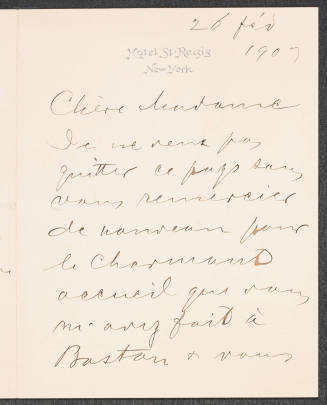 26 fév
Hotel St. Regis
New York
1907
Chère Madame
Je ne veux pas
quitter ce pays sans
vous remercier
de nouveau pour
le charmant
accueil que vous
m'avez fait à
Boston & vous